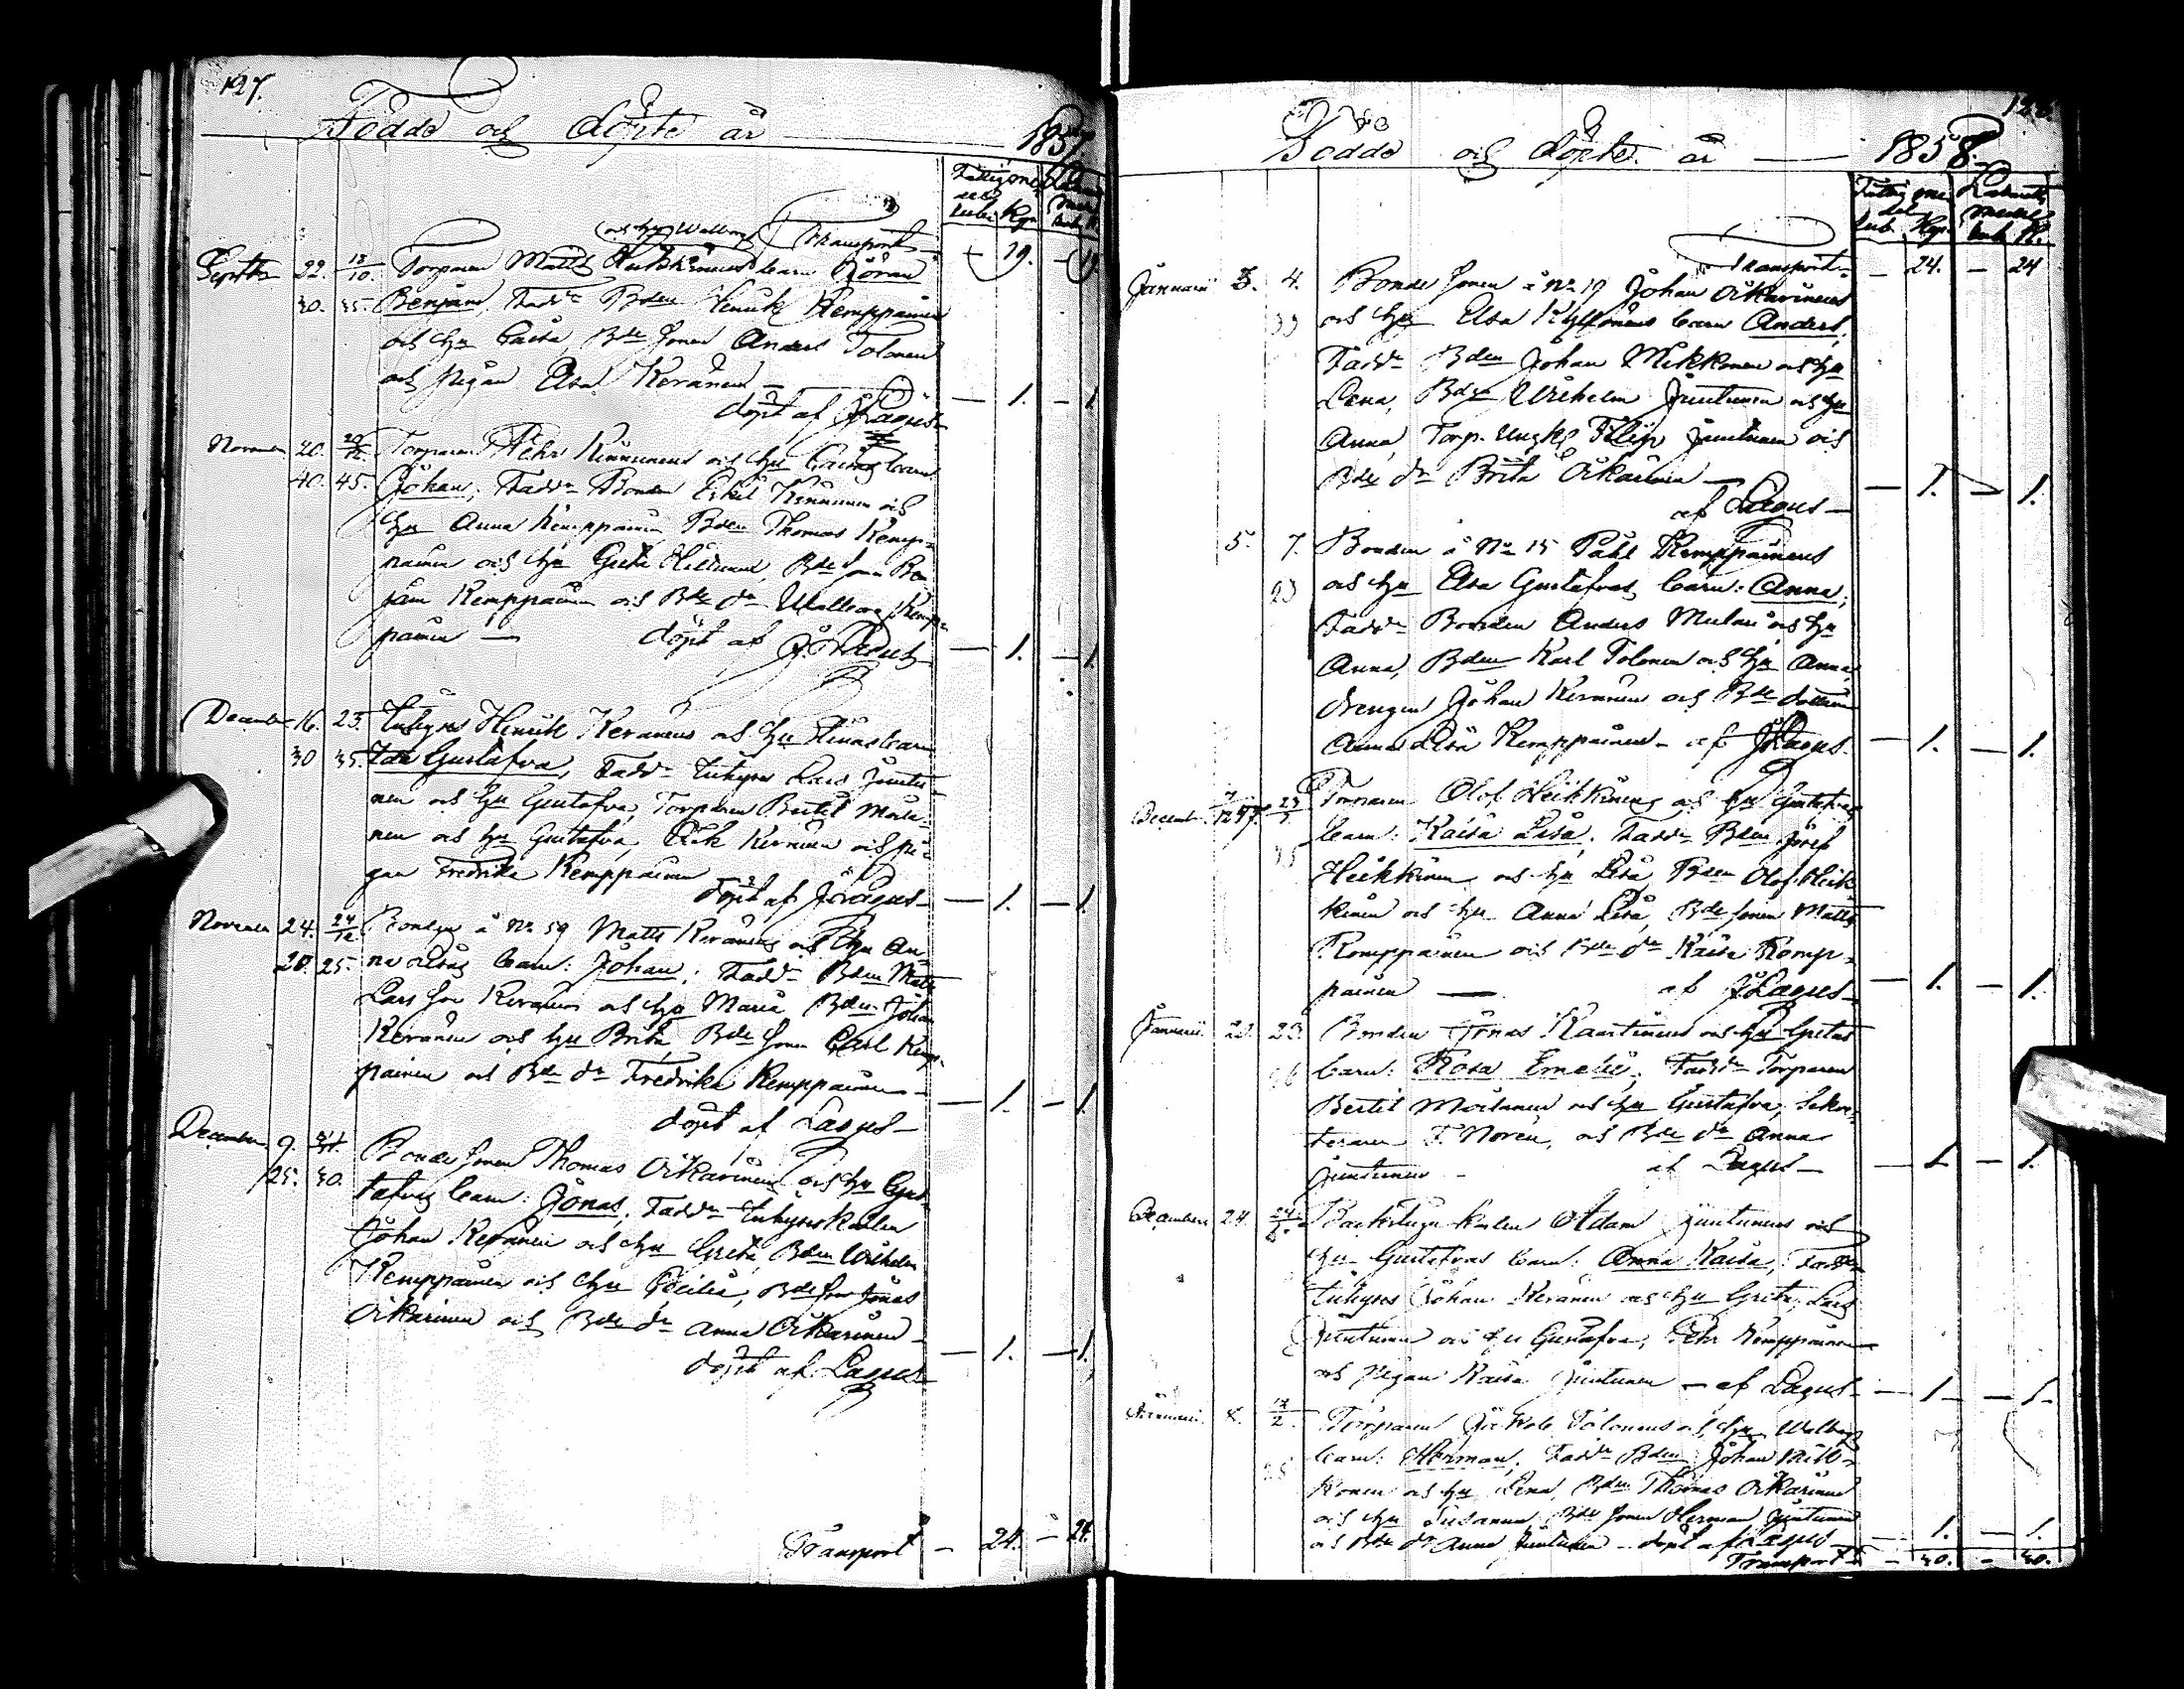 127.
Födde och döpte år 1857.
Fattigmedel Lasaretts medel
Rub. Kop. Rub. K.
och hu Walborg Transport
Septbr 22. 18/10. Torparen Matts Heikkinens barn Göran - 19. - 19
30. 35. Benjam, Faddr Bden Henrik Kemppainen
och hu Caisa Bde sonen Anders Tolonen
och pigan Elsa Keränen —
döpt af J. Lagus — 1. — 1
Novemb 20. 20/12 Torparen Pehr Kinnunens och hu Caisas barn
40. 45. Johan, Faddr Bonden Eskil Kinnunen och
hu Anna Kemppainen Bden Thomas Kemp-
painen och hu Greta Heikkinen, Bde sonen Ben
jam Kemppainen och Bde dr Walborg Kemp-
painen — döpt af J. Lagus — 1. — 1.
December 16. 25. Inhyses Henrik Keränens och hu Stinas barn
30 35. Ida Gustafva, Faddr Inhyses Lars Juntu-
nen och hu Gustafva, Torparen Bertil Moila-
nen och hu Gustafva, Erik Keränen och pi-
gan Fredrika Kemppainen
döpt af J. Lagus — 1. — 1.
Novemb 24. 24/12 Bonden å No 59 Matts Keränens och hu An-
20. 25. na Lisas barn: Johan; Faddr Bden Matts
Lars son Keränen och hu Maria Bden Johan
Keränen och hu Brita, Bde sonen Carl Kemp-
painen och Bde dr Fredrika Kemppainen —
döpt af Lagus — 1. — 1.
December 9. Bonde sonen Thomas Oikarinens och hu Gus-
25. 30. tafvas barn: Jonas, Faddr Inhyseskarlen
Johan Keränen och hu Greta, Bden Wilhelm
Kemppainen och hu Cecilia, Bde son Jonas
Oikarinen och Bde dr Anna Oikarinen —
döpt af Lagus — 1. — 1.
Transport — 24. — 24.
Födde och döpte år — 1858.
Fattig medel Lasaretts medel
Rub. Kop. Rub. K.
Transport — 24. — 24
Januarii 3. 4. Bonde sonen å No 19 Johan Oikarinens
och hu Elsa Kyllönens barn Anders,
Faddr Bden Johan Mikkonen och hu
Lena, Bden Wilhelm Juntunen och hu
Anna, Torp. Ungkl Filip Juntunen och
Bde dr Brita Oikarinen —
af Lagus — 1. — 1.
5. 7. Bonden å No 15 Påhl Kemppainens
23 och hu Elsa Gustafvas barn: Anna;
Faddr Bonden Anders Mulari och hu
Anna, Bden Karl Tolonen och hu Anna,
drengen Johan Keränen och Bde dottren
Anna Lisa Kemppainen — af J. Lagus. — 1. — 1.
Decemb. Torparen Olof Heikkinens och hu Gustafvas
35 barn: Kaisa Lisa, Faddr Bden Josef
Heikkinen och hu Lisa, Bden Olof Heik
kinen och hu Anna Lisa, Bde sonen Matts
Kemppainen och Bde dr Kaisa Kemp-
painen — af J. Lagus — 1. — 1.
Januarii 23. Bonden Jonas Kaartinens och hu Gretas
barn: Rosa Emelie, Faddr Torparen
Bertil Moilanen och hu Gustafva, Sekre-
teraren F. Noren, och Bde dr Anna
Juntunen — af Lagus — 1 — 1.
December 24. Backstugu karlen Adam Juntunens och
hu Gustafvas barn: Anna Kaisa, Faddr
Inhyses Johan Keränen och hu Greta, Lars
Juntunen och hu Gustafva, Pehr Kemppainen
och pigan Kaisa Juntunen — af Lagus — 1 — 1.
Torparen Jakob Tolonens och hu Walborgs
barn: Herman, Faddr Bden Johan Mik-
konen och hu Lena, Bden Thomas Oikarinen
och hu Susanna, Bde sonen Herman Juntunen
och Bde dr Anna Juntunen — döpt af Lagus — 1. — 1.
Transport — 30. — 30.